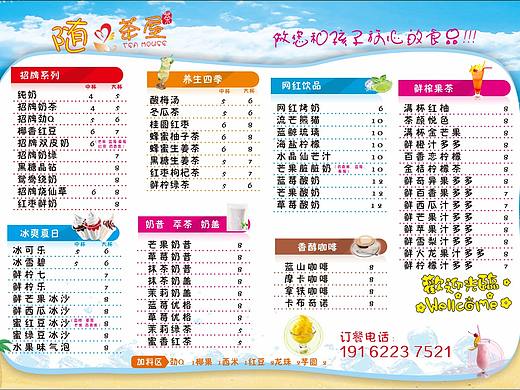 随心茶屋
TEA HOUSE
做您和孩子放心的食品!!!
招牌系列
中杯 大杯
纯奶 4 5
招牌奶茶 4 5
招牌劲Q 5 6
椰香红豆 6 7
招牌双皮奶
招牌奶绿 7
黑糖晶钻 8
鸳鸯绕奶 8
招牌烧仙草 6 8
红枣鲜奶 8
冰爽夏日
中杯 大杯
冰可乐 5 6
冰雪碧 5 6
鲜柠七 7
鲜柠乐 7
鲜芒果冰沙 8
鲜西瓜冰沙 8
蜜红豆冰沙 8
蜜绿豆冰沙 8
水果味气泡 8
养生四季
中杯 大杯
酸梅汤 5 6
冬瓜茶 5 6
桂圆红枣 6 8
蜂蜜柚子茶 6 8
蜂蜜生姜茶 6 8
黑糖生姜茶 6 8
红枣枸杞茶 6 7
鲜柠绿茶 5 6
奶昔 萃茶 奶盖
芒果奶昔 8
草莓奶昔 8
抹茶奶昔 8
抹茶奶盖 8
茉莉奶盖 8
蓝莓优格 8
草莓优格 8
茉莉绿茶 5
黑香红茶 5
加料区
劲Q 椰果 西米 红豆 龙珠 芋圆
网红饮品
网红烤奶 6
流芒熊猫 10
蓝鲸琉璃 10
海盐柠檬 10
水晶仙芒汁 10
芒果脏脏奶 10
蓝莓奶酸 12
芒果奶酸 12
草莓奶酸 12
香醇咖啡
蓝山咖啡 8
摩卡咖啡 8
拿铁咖啡 8
卡布奇诺 8
鲜榨果茶
满杯红柚 8
茶颜悦色 8
满杯金芒果 8
鲜橙汁多多 8
百香恋柠檬 8
金桔柠檬茶 8
鲜奇异果多多 8
鲜百香果多多 8
鲜西瓜汁多多 8
鲜芒果汁多多 8
鲜苹果汁多多 8
鲜雪梨汁多多 8
鲜火龙果汁多多 8
鲜柠檬汁多多 7
欢迎光临
Wellcome
订餐电话:
191 6223 7521